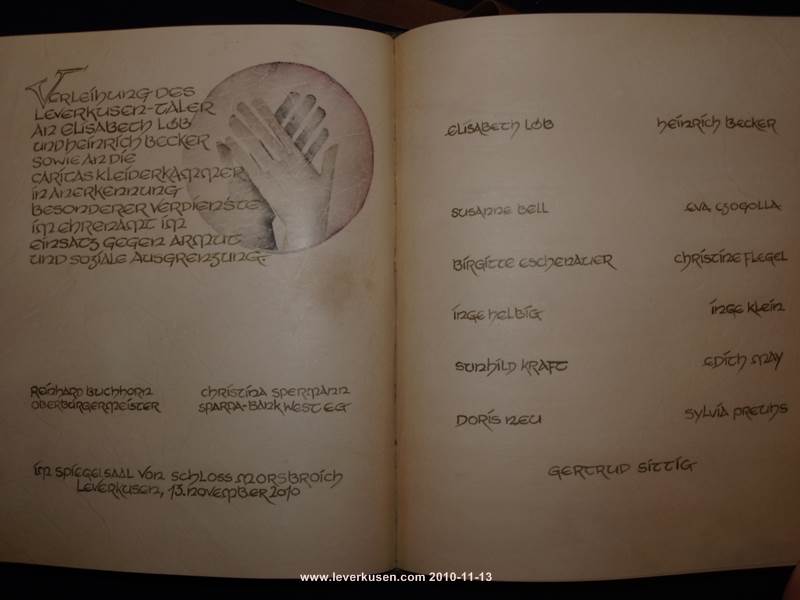 Verleihung des
Leverkusen-Taler
an Elisabeth Löb
und Heinrich Becker
sowie an die
Caritas Kleiderkammer
in Anerkennung
besonderer Verdienste
im Ehrenamt im
Einsatz gegen Armut
und soziale Ausgrenzung.
Reinhard Buchhorn
Oberbürgermeister
Christina Spermann
Sparda-Bank West eG
Im Spiegelsaal von Schloss Morsbroich
Leverkusen, 13. November 2010
Elisabeth Löb
Heinrich Becker
Susanne Bell
Eva Czogolla
Birgitte Eschenauer
Christine Flegel
Inge Helbig
Inge Klein
Sunhild Kraft
Edith May
Doris Neu
Sylvia Preuhs
Gertrud Sittig
www.leverkusen.com 2010-11-13